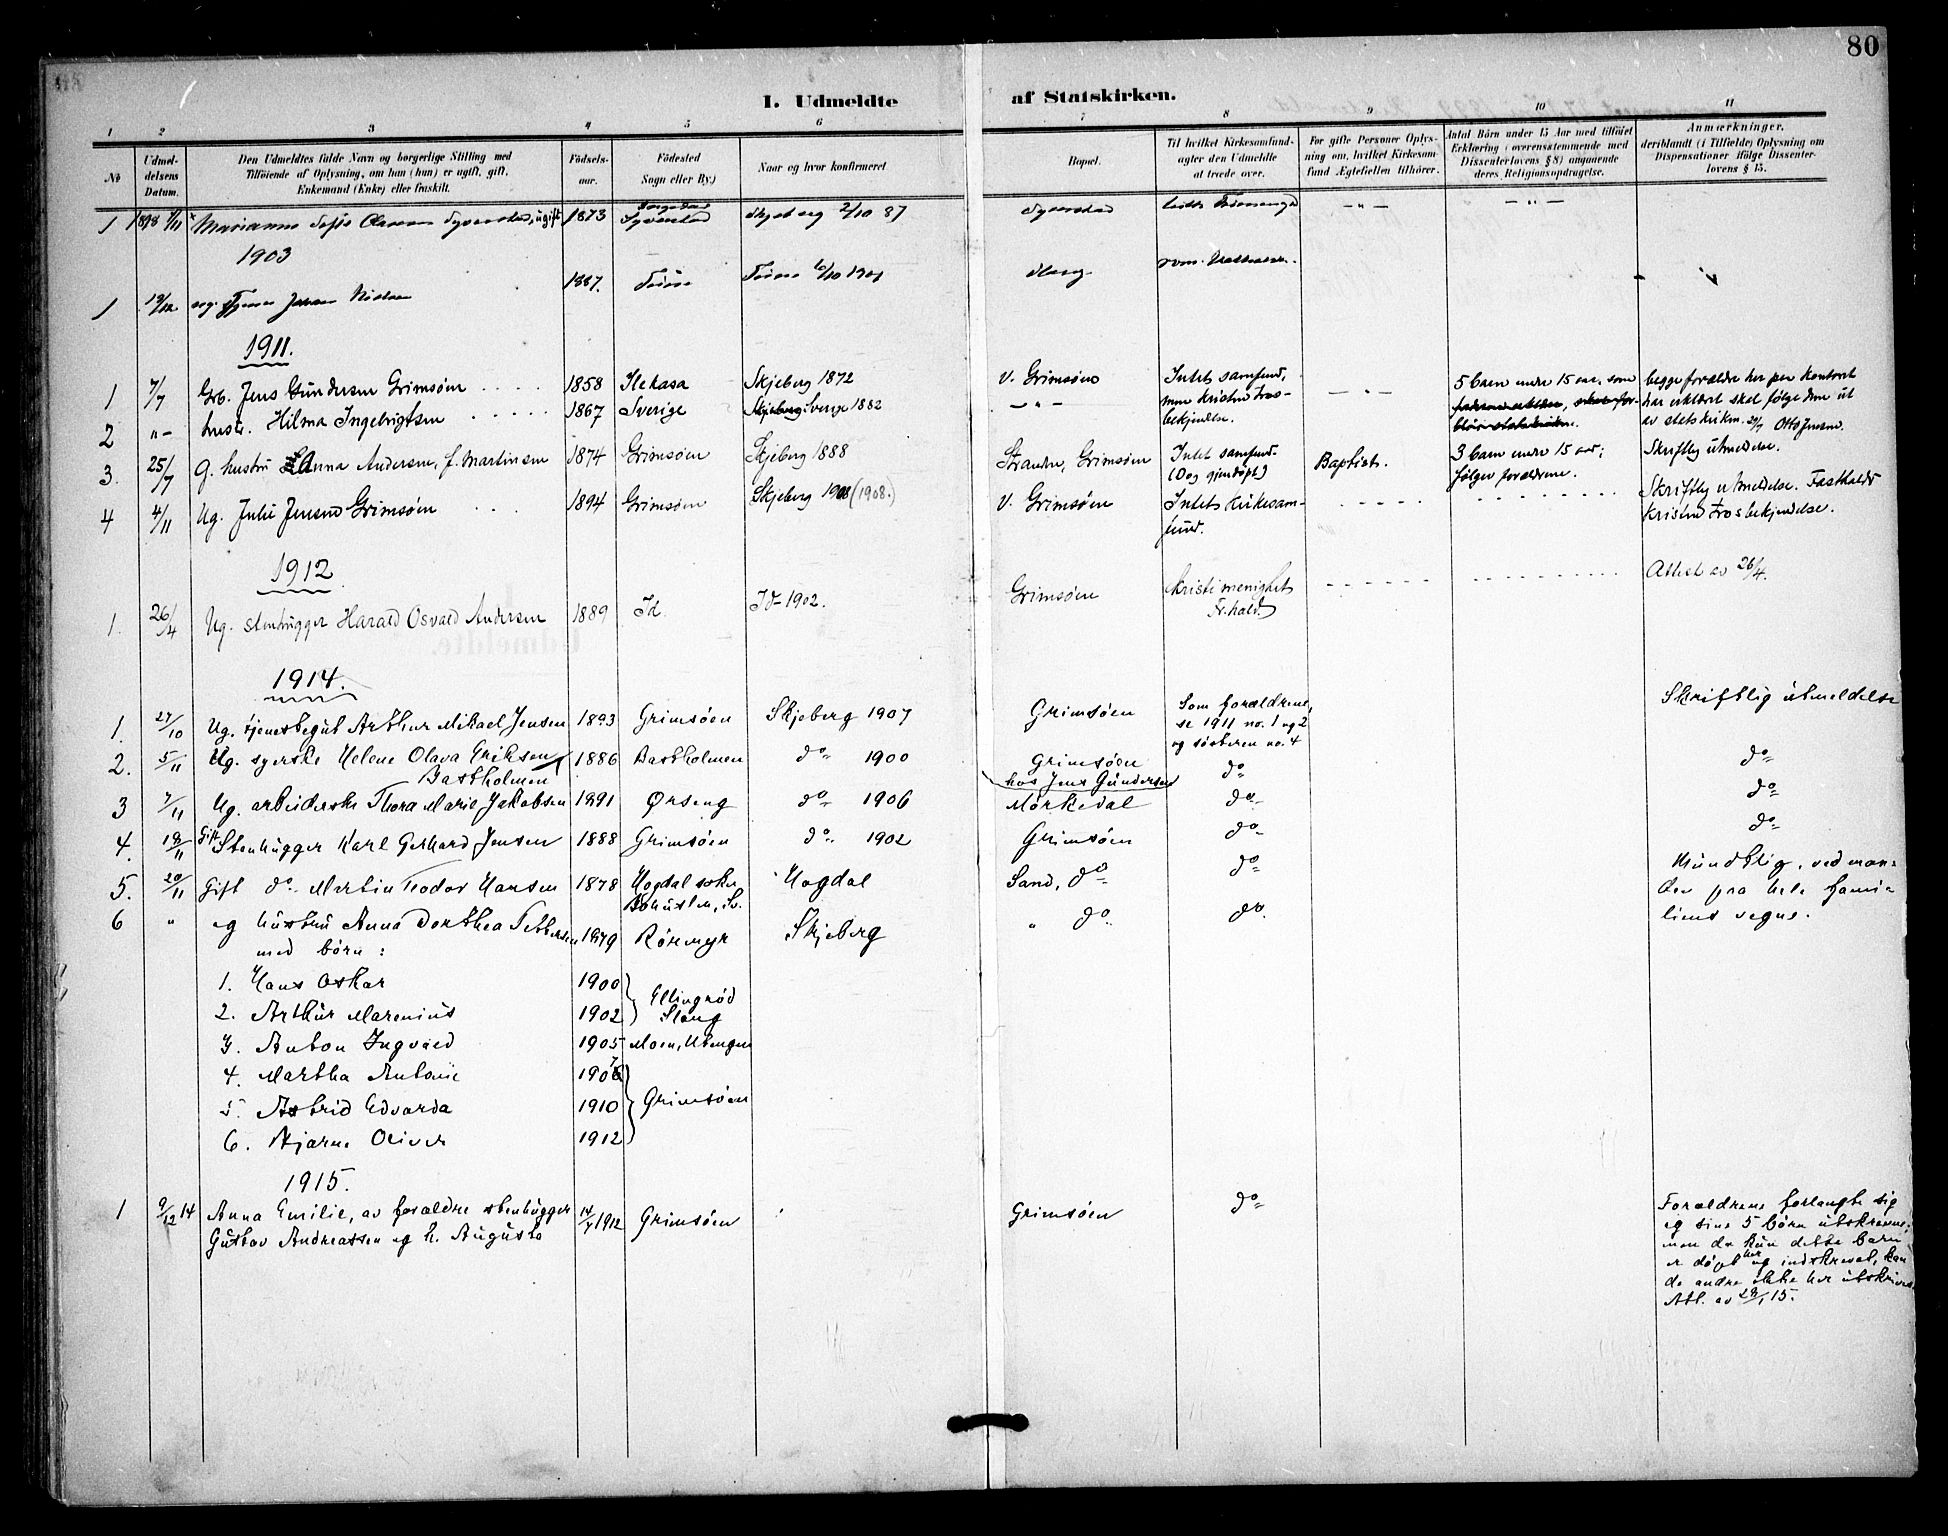 80
I. Udmeldte af Statskirken.
1 2 3 4 5 6 7 8 9 10 11
No
Udmel-
delsens
Datum.
Den Udmeldtes fulde Navn og borgerlige Stilling med
Tilføiende af Oplysning, om han (hun) er ugift, gift,
Enkemand (Enke) eller fraskilt.
Fødsels-
aar.
Fødested
Sogn eller By.)
Naar og hvor konfirmeret
Bopæl.
Til hvilket Kirkesamfund-
agter den Udmeldte
at træde over.
For gifte Personer Oplys-
ning om, hvilket Kirkesam-
fund Ægtefællen tilhører.
Antal Børn under 15 Aar med tilføiet
Erklæring i overensstemmende med
Dissenterlovens § 8) angaaende
deres Religionsopdragelse.
Anmærkninger.
deriblandt (i Tilfælde) Oplysning om
Dispensationer ifølge Dissenter-
lovens § 15.
1 1898 7/11 Marianne Sofie Olsen Syverstad, ugift 1873 Syverstad Skjeberg 2/10 87 Syverstad — " — — " —
1903
1 19/12 Johan Nielsen 1887. Teiene Teiene 10/10 1901 rom.
1911.
1 7/7 Grb. Jens Gundersen Grimsøen 1858 Ilekasa Skjeberg 1872 V. Grimsøen Intet samfund, — " — 5 barn under 15 aar, som begge forældre her pr kontoret
2 " – hustr. Hilma Ingebrigtsen 1867 Sverige Skjeberg Sverige 1882 — " — men kristen tros- har erklært skal følge dem ut
bekjendelse. av statskirken. 20/7 Otto Jensen.
3. 25/7 G. hustru Anna Andersen, f. Martinsen 1874 Grimsøen Skjeberg 1888 Stranden, Grimsøen Intet samfund. Baptist. 3 barn under 15 aar; Skriftlig utmeldelse.
(Dog gjendøpt) følger forældrene.
4 4/11 Ug. Julie Jensen Grimsøen 1894 Grimsøen Skjeberg 1908 (1908.) V. Grimsøen Intet kirkesam- Skriftlig utmeldelse. Fastholder
fund. kristen trosbekjendelse.
1912
1. 26/4 Ug. stenhugger Harald Osvald Andersen 1889 Id Id – 1902. Grimsøen Kristi menighet Attest av 26/4.
Fr.hald
1914.
1. 27/10 Ug. tjenestegut Arthur Mikael Jensen 1893 Grimsøen Skjeberg 1907 Grimsøen Som forældrene, Skriftlig utmeldelse
se 1911 no. 1 og 2
og søsteren no. 4
2. 5/11 Ug. syerske Helene Olava Eriksen 1886 Bastholmen do 1900 Grimsøen do do
Bastholmen hos Jens Gundersen
3 7/11 Ug. arbeiderske Thora Marie Jakobsen 1891 Ørseng do 1906 Mørkedal do do
4. 19/11 Gift Stenhugger Karl Gerhard Jensen 1888 Grimsøen do 1902 Grimsøen do do
5. 20/11 Gift do Martin Teodor Hansen 1878 Hogdal sokn Hogdal Sand, do do Mundtlig, ved man-
Bohuslen, Sv. den pra hele fami-
6 " og hustru Anna Dorthea Pettersen 1879 Rörmyr Skjeberg " do do liens vegne.
med børn:
1. Hans Oskar 1900
Ellingrød
2. Arthur Marenius 1902 Slang
3. Anton Ingvald 1905 Moen, Utengen
4. Martha Antonie 1907
5. Astrid Edvarda 1910 Grimsøen
6. Bjarne Oliver 1912
1915.
1 9/12 14 Anna Emilie, av forældre stenhugger 14/4 1912 Grimsøen Grimsøen do Forældrene forlangte sig
Gustav Andreassen og h. Augusta og sine 5 børn utskrevne;
men da kun dette barn
er døpt her og indskrevet, kan
de andre ikke her utskrives
Att. av 29/1 15.